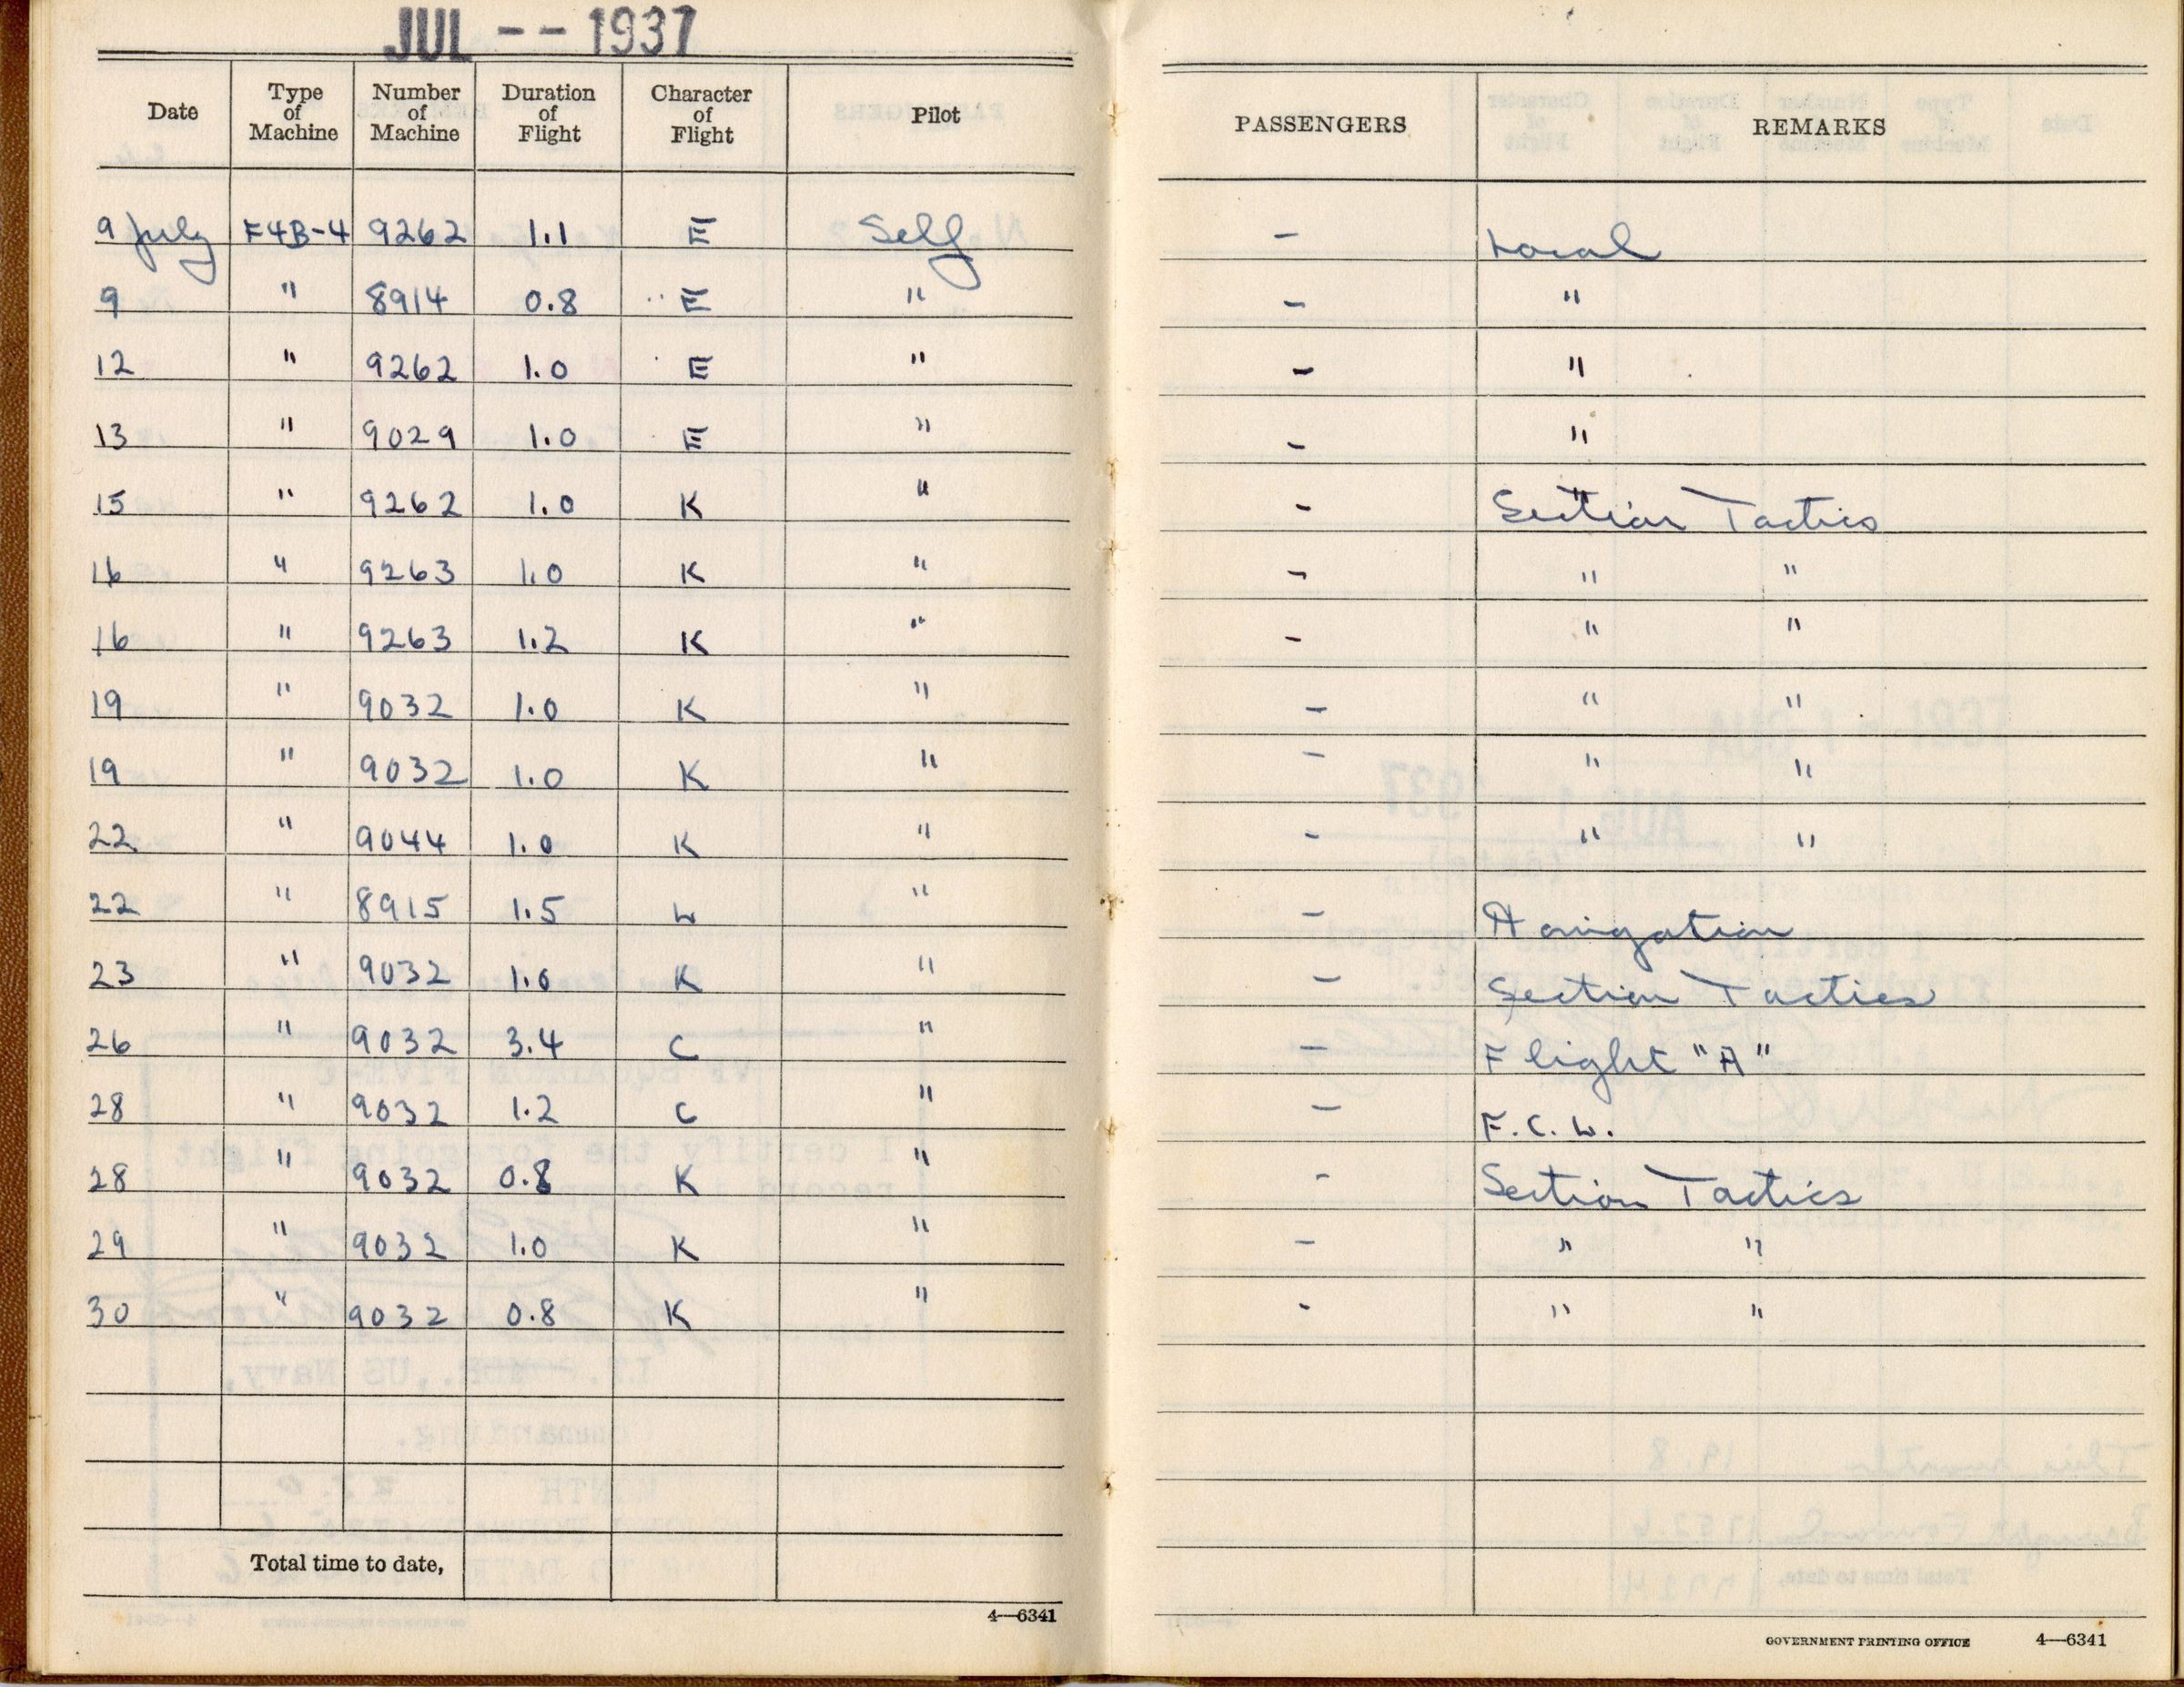 JUL -- 1937
Date Type of Machine Number of Machine Duration of Flight Character of Flight Pilot PASSENGERS REMARKS
9 July F4B-4 9262 1.1 E Self - Local
9 " 8914 0.8 E " - "
12 " 9262 1.0 E " - "
13 " 9029 1.0 E " - "
15 " 9262 1.0 K " - Section Tactics
16 " 9263 1.0 K " - " "
16 " 9263 1.2 K " - " "
19 " 9032 1.0 K " - " "
19 " 9032 1.0 K " - " "
22 " 9044 1.0 K " - " "
22 " 8915 1.5 L " - Navigation
23 " 9032 1.0 K " - Section Tactics
26 " 9032 3.4 C " - Flight "A"
28 " 9032 1.2 C " - F.C.L.
28 " 9032 0.8 K " - Section Tactics
29 " 9032 1.0 K " - " "
30 " 9032 0.8 K " - " "
Total time to date,
4—6341
GOVERNMENT PRINTING OFFICE 4—6341